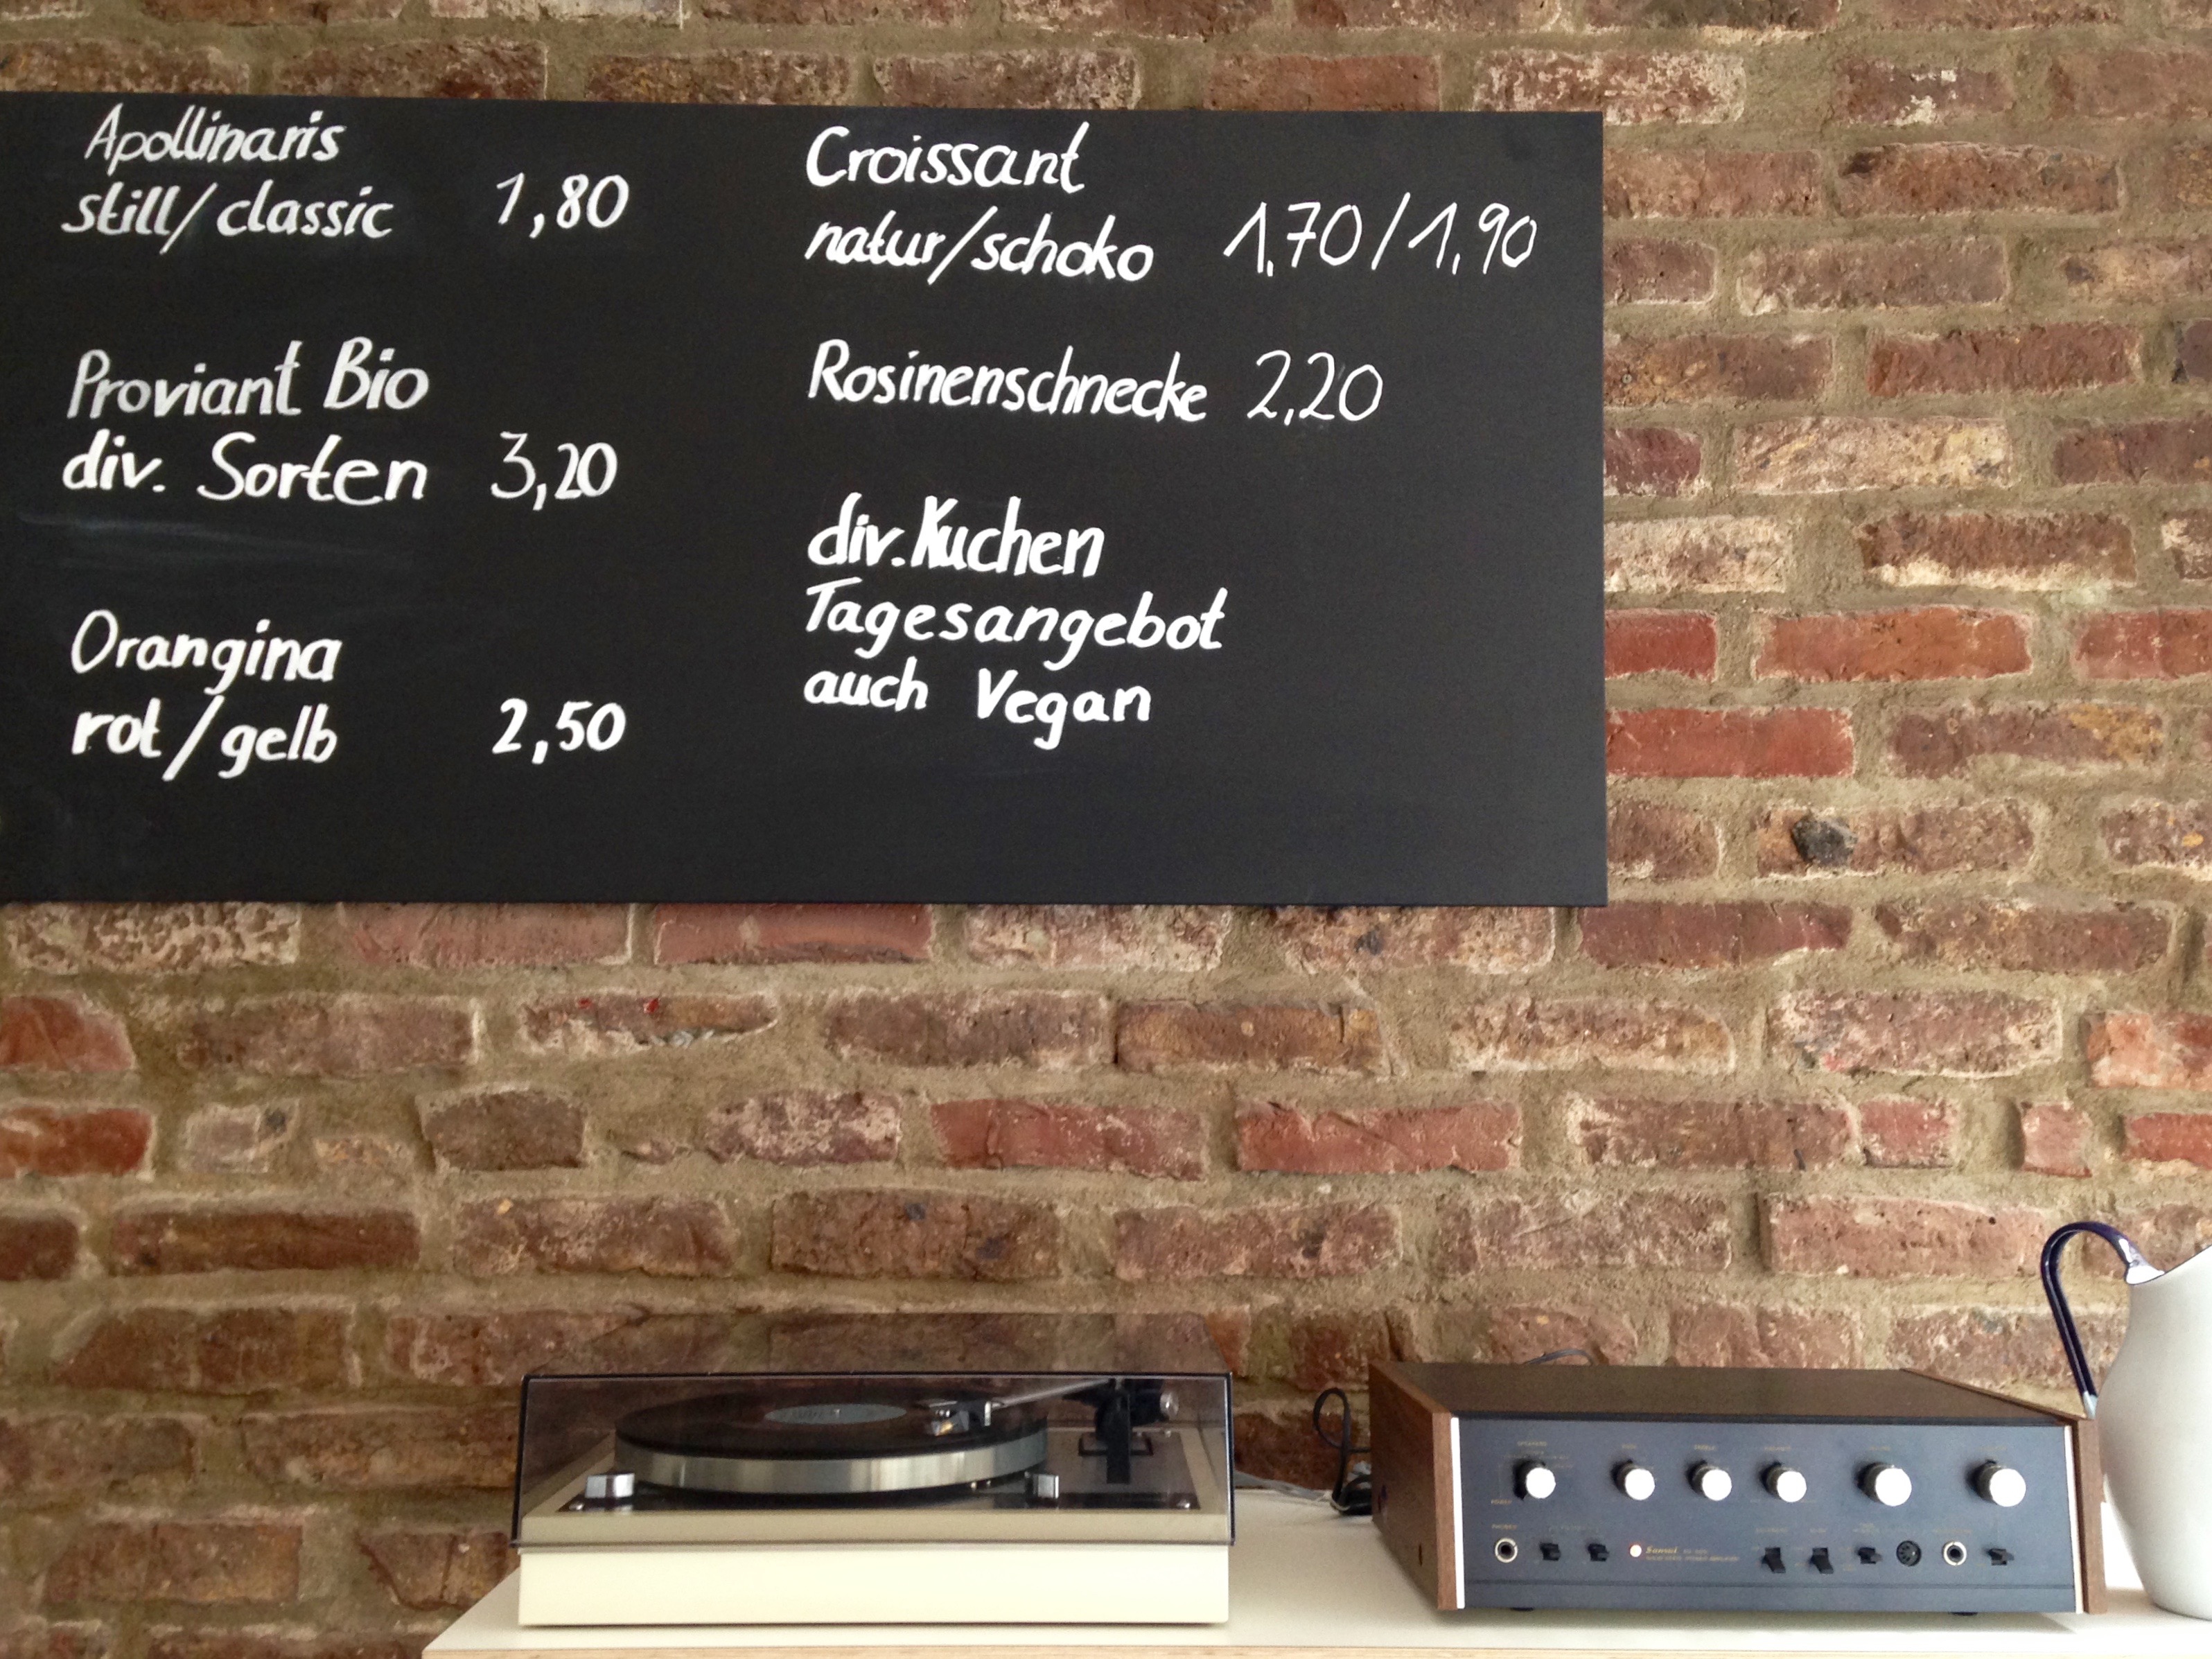 Apollinaris
still/classic 1,80
Proviant Bio
div. Sorten 3,20
Orangina
rot/gelb 2,50
Croissant
natur/schoko 1,70/1,90
Rosinenschnecke 2,20
div. Kuchen
Tagesangebot
auch Vegan
Sansui